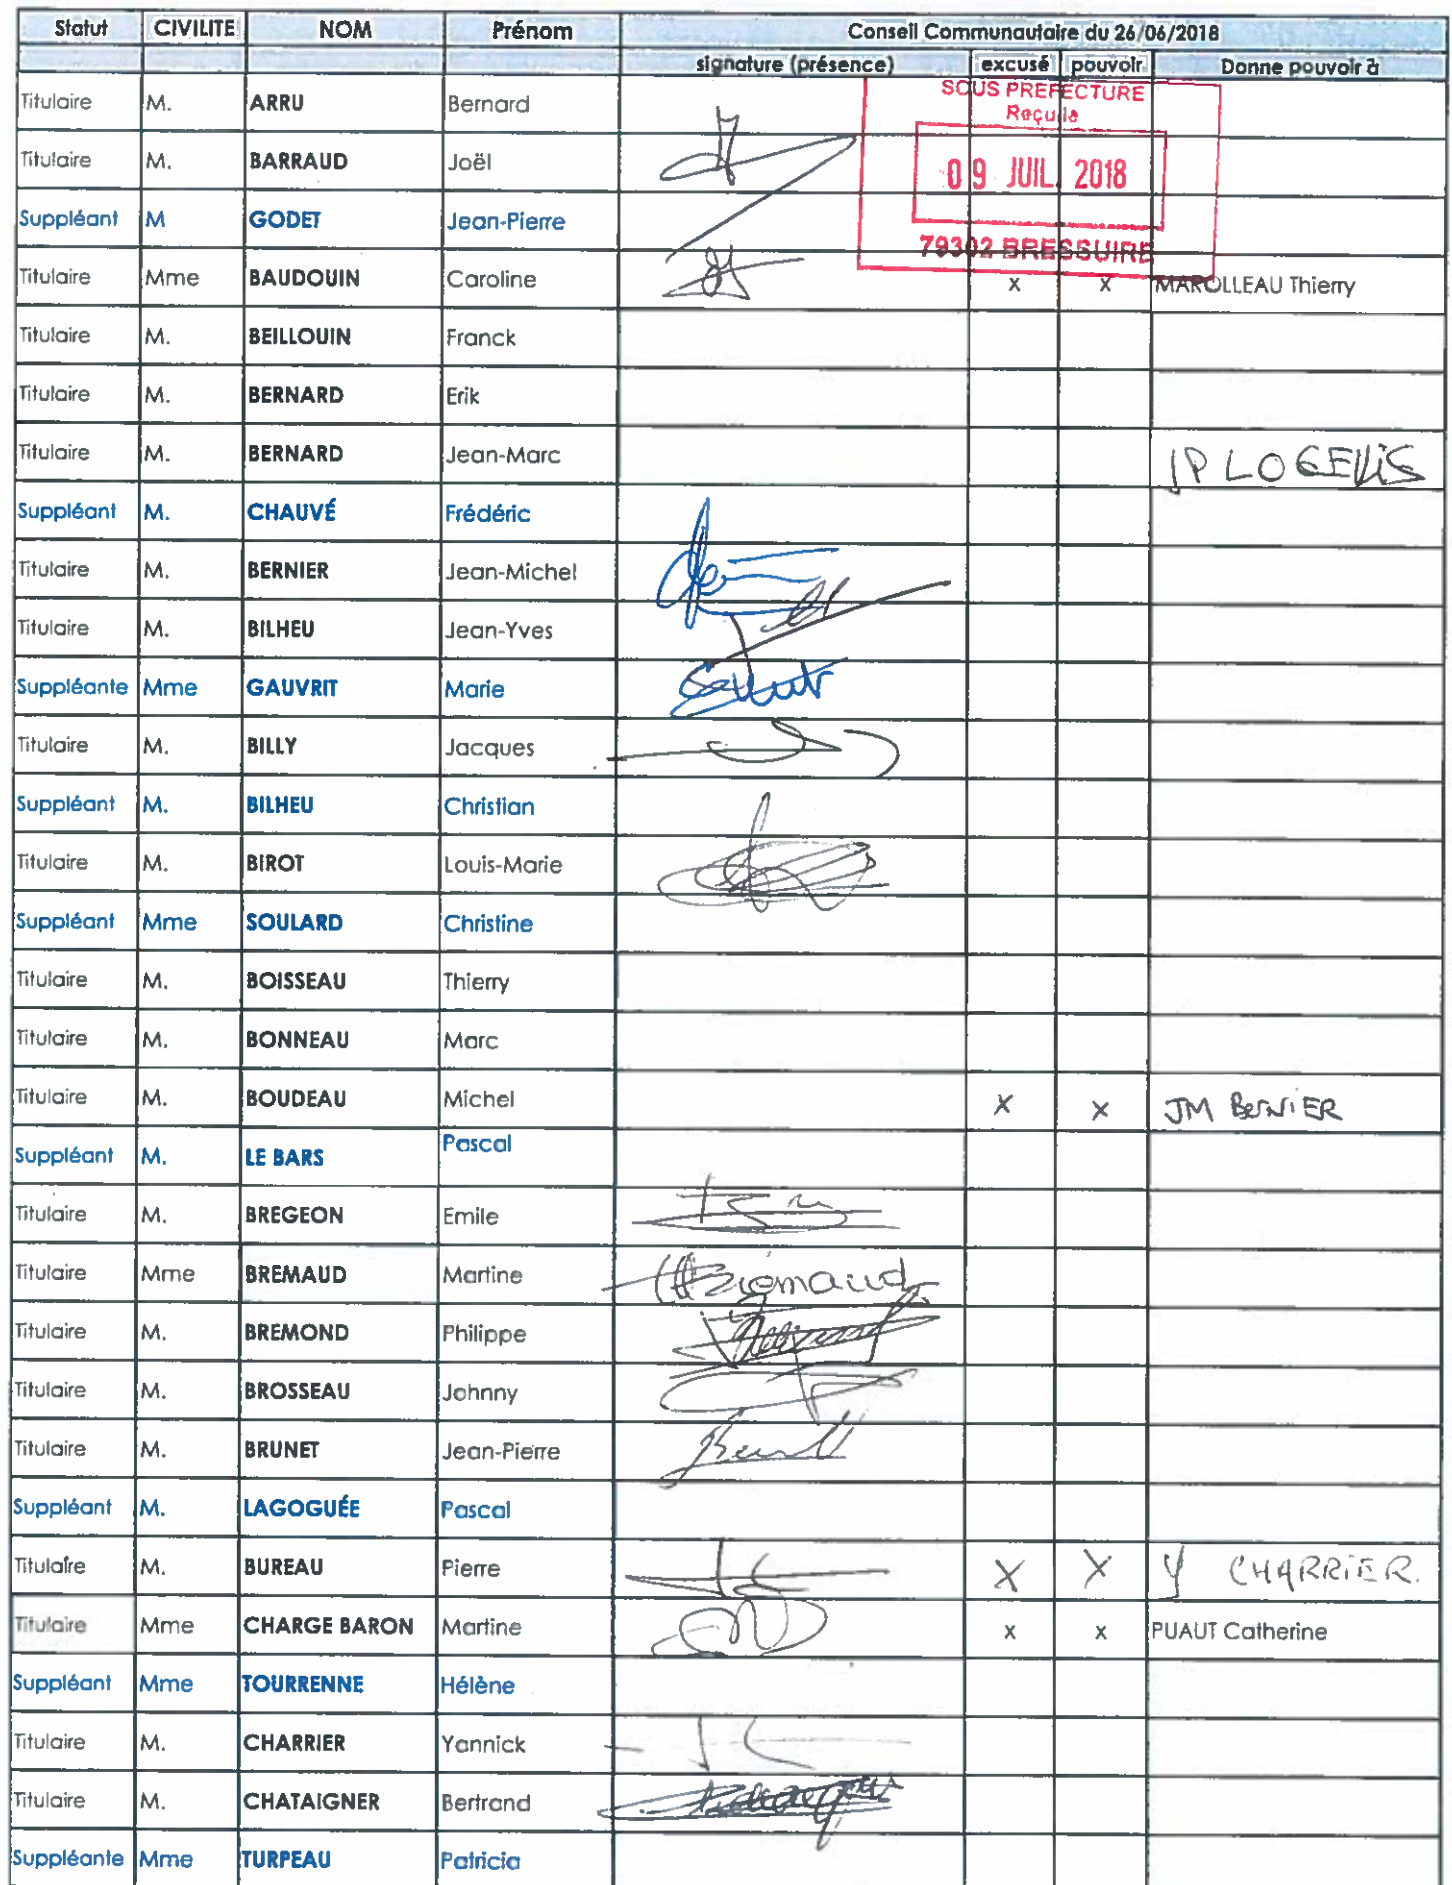 Statut CIVILITE NOM Prénom Conseil Communautaire du 26/06/2018
signature (présence) excusé pouvoir Donne pouvoir à
SOUS PREFECTURE
Reçu le
09 JUIL. 2018
79302 BRESSUIRE
Titulaire M. ARRU Bernard
Titulaire M. BARRAUD Joël
Suppléant M GODET Jean-Pierre
Titulaire Mme BAUDOUIN Caroline x x MAROLLEAU Thierry
Titulaire M. BEILLOUIN Franck
Titulaire M. BERNARD Erik
Titulaire M. BERNARD Jean-Marc JP LOGEAIS
Suppléant M. CHAUVÉ Frédéric
Titulaire M. BERNIER Jean-Michel
Titulaire M. BILHEU Jean-Yves
Suppléante Mme GAUVRIT Marie
Titulaire M. BILLY Jacques
Suppléant M. BILHEU Christian
Titulaire M. BIROT Louis-Marie
Suppléant Mme SOULARD Christine
Titulaire M. BOISSEAU Thierry
Titulaire M. BONNEAU Marc
Titulaire M. BOUDEAU Michel X X JM BERNIER
Suppléant M. LE BARS Pascal
Titulaire M. BREGEON Emile
Titulaire Mme BREMAUD Martine Bremaud
Titulaire M. BREMOND Philippe
Titulaire M. BROSSEAU Johnny
Titulaire M. BRUNET Jean-Pierre
Suppléant M. LAGOGUÉE Pascal
Titulaire M. BUREAU Pierre X X Y CHARRIER.
Titulaire Mme CHARGE BARON Martine x x PUAUT Catherine
Suppléant Mme TOURRENNE Hélène
Titulaire M. CHARRIER Yannick
Titulaire M. CHATAIGNER Bertrand
Suppléante Mme TURPEAU Patricia